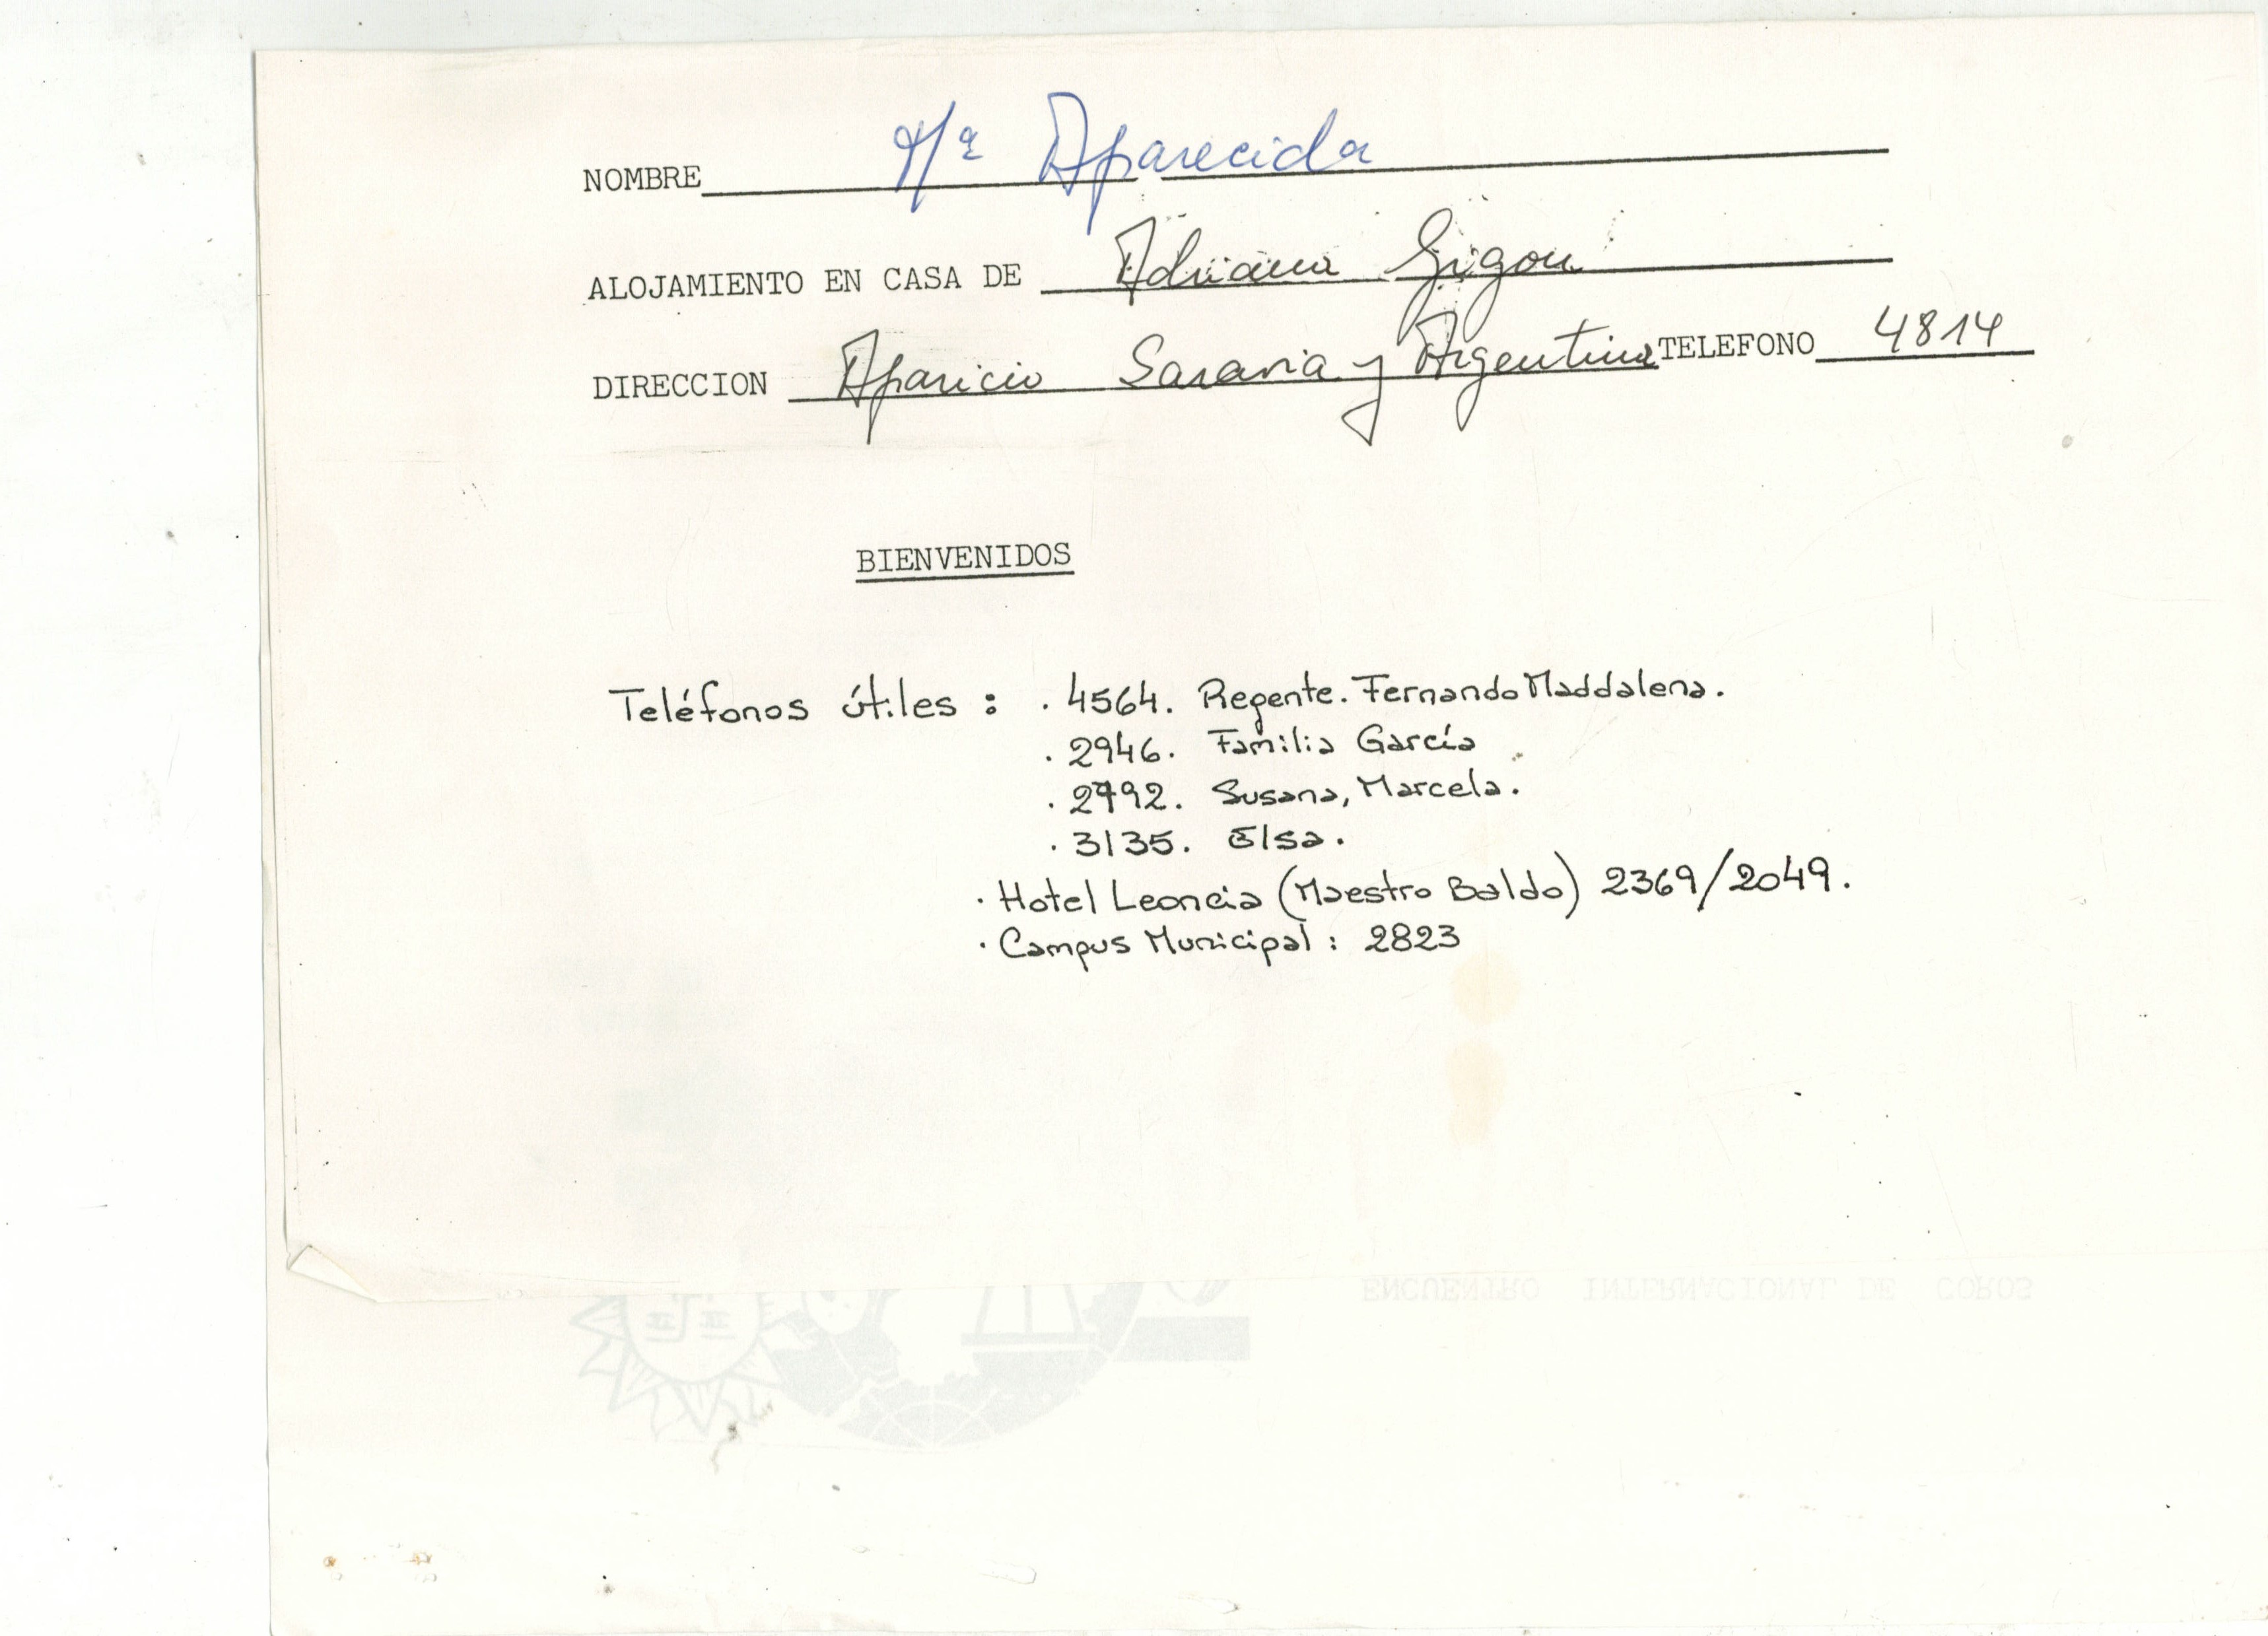 NOMBRE Mª Aparecida
ALOJAMIENTO EN CASA DE Adriana Grigou
DIRECCION Aparicio Saravia y Argentina TELEFONO 4814
BIENVENIDOS
Teléfonos útiles : . 4564. Regente. Fernando Maddalena.
. 2946. Familia García
. 2792. Susana, Marcela.
. 3135. Elsa.
. Hotel Leoncia (Maestro Baldo) 2369/2049.
. Campus Municipal : 2823
ENCUENTRO INTERNACIONAL DE COROS